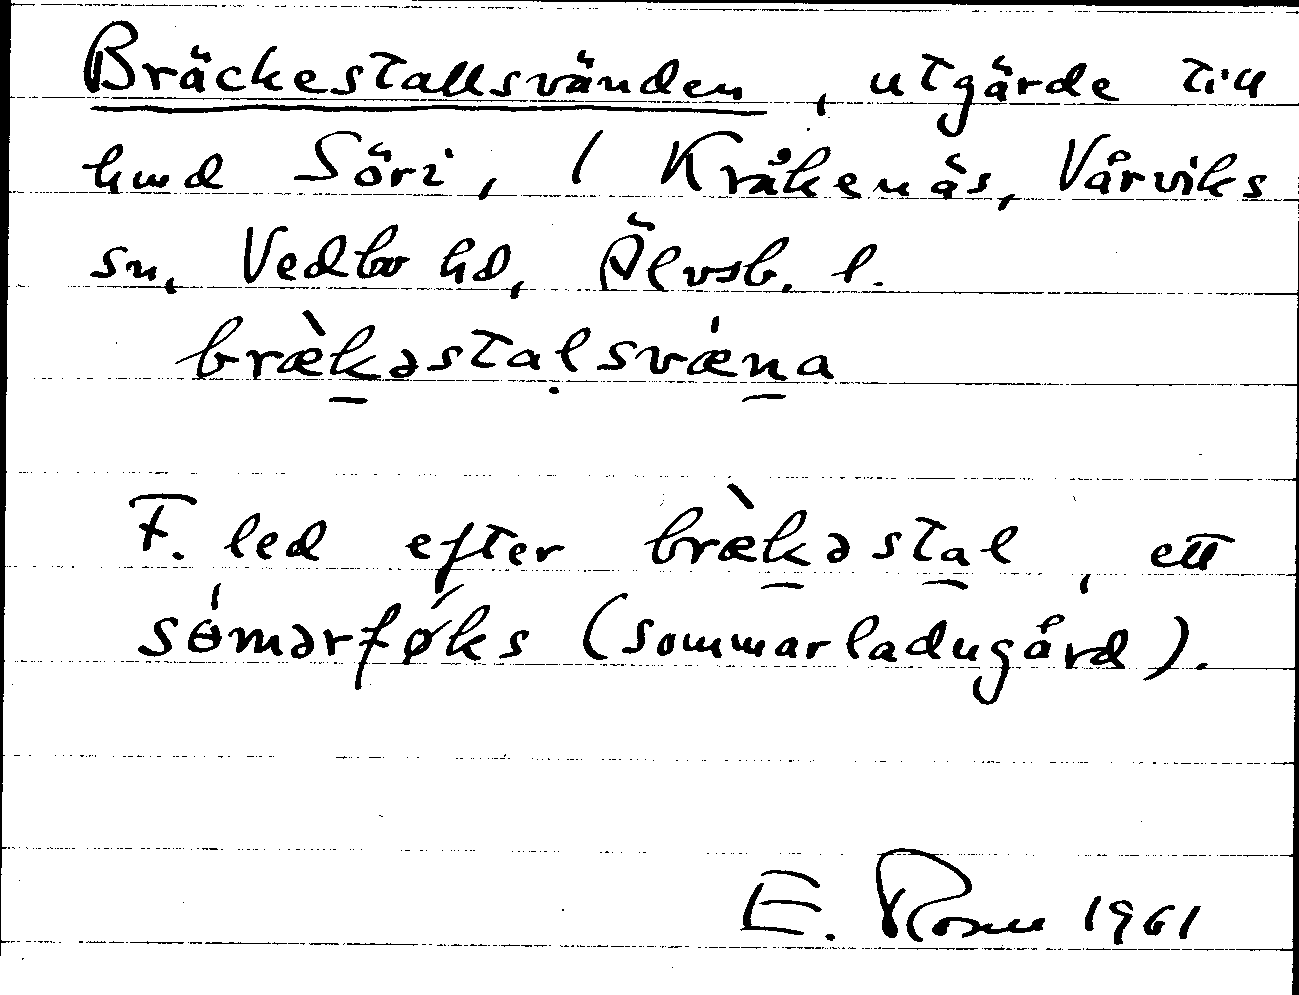 Bräckestallsvänden, utgärde till
hmd Söri, 1 Kråkenäs, Vårviks
sn, Vedbo hd, Älvsb. l.
bræ̀k̠əstaḷsvǽn̠a
F. led efter bræ̀k̠əsta̠l, ett
sɵ́mərføks (sommarladugård).
E. Rosen 1961